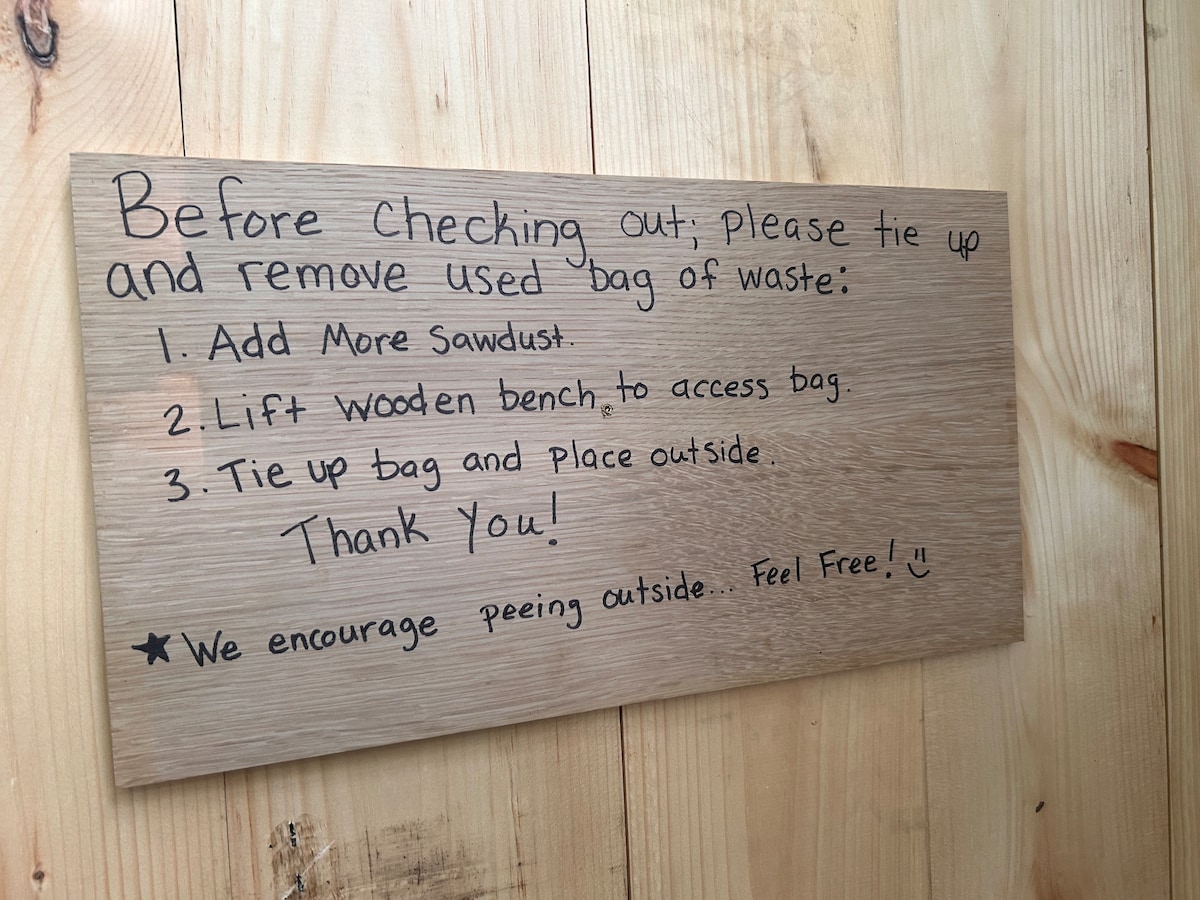 Before checking out; please tie up
and remove used bag of waste:
1. Add More Sawdust.
2. Lift wooden bench to access bag.
3. Tie up bag and place outside.
Thank You!
★ We encourage peeing outside... Feel Free! :)